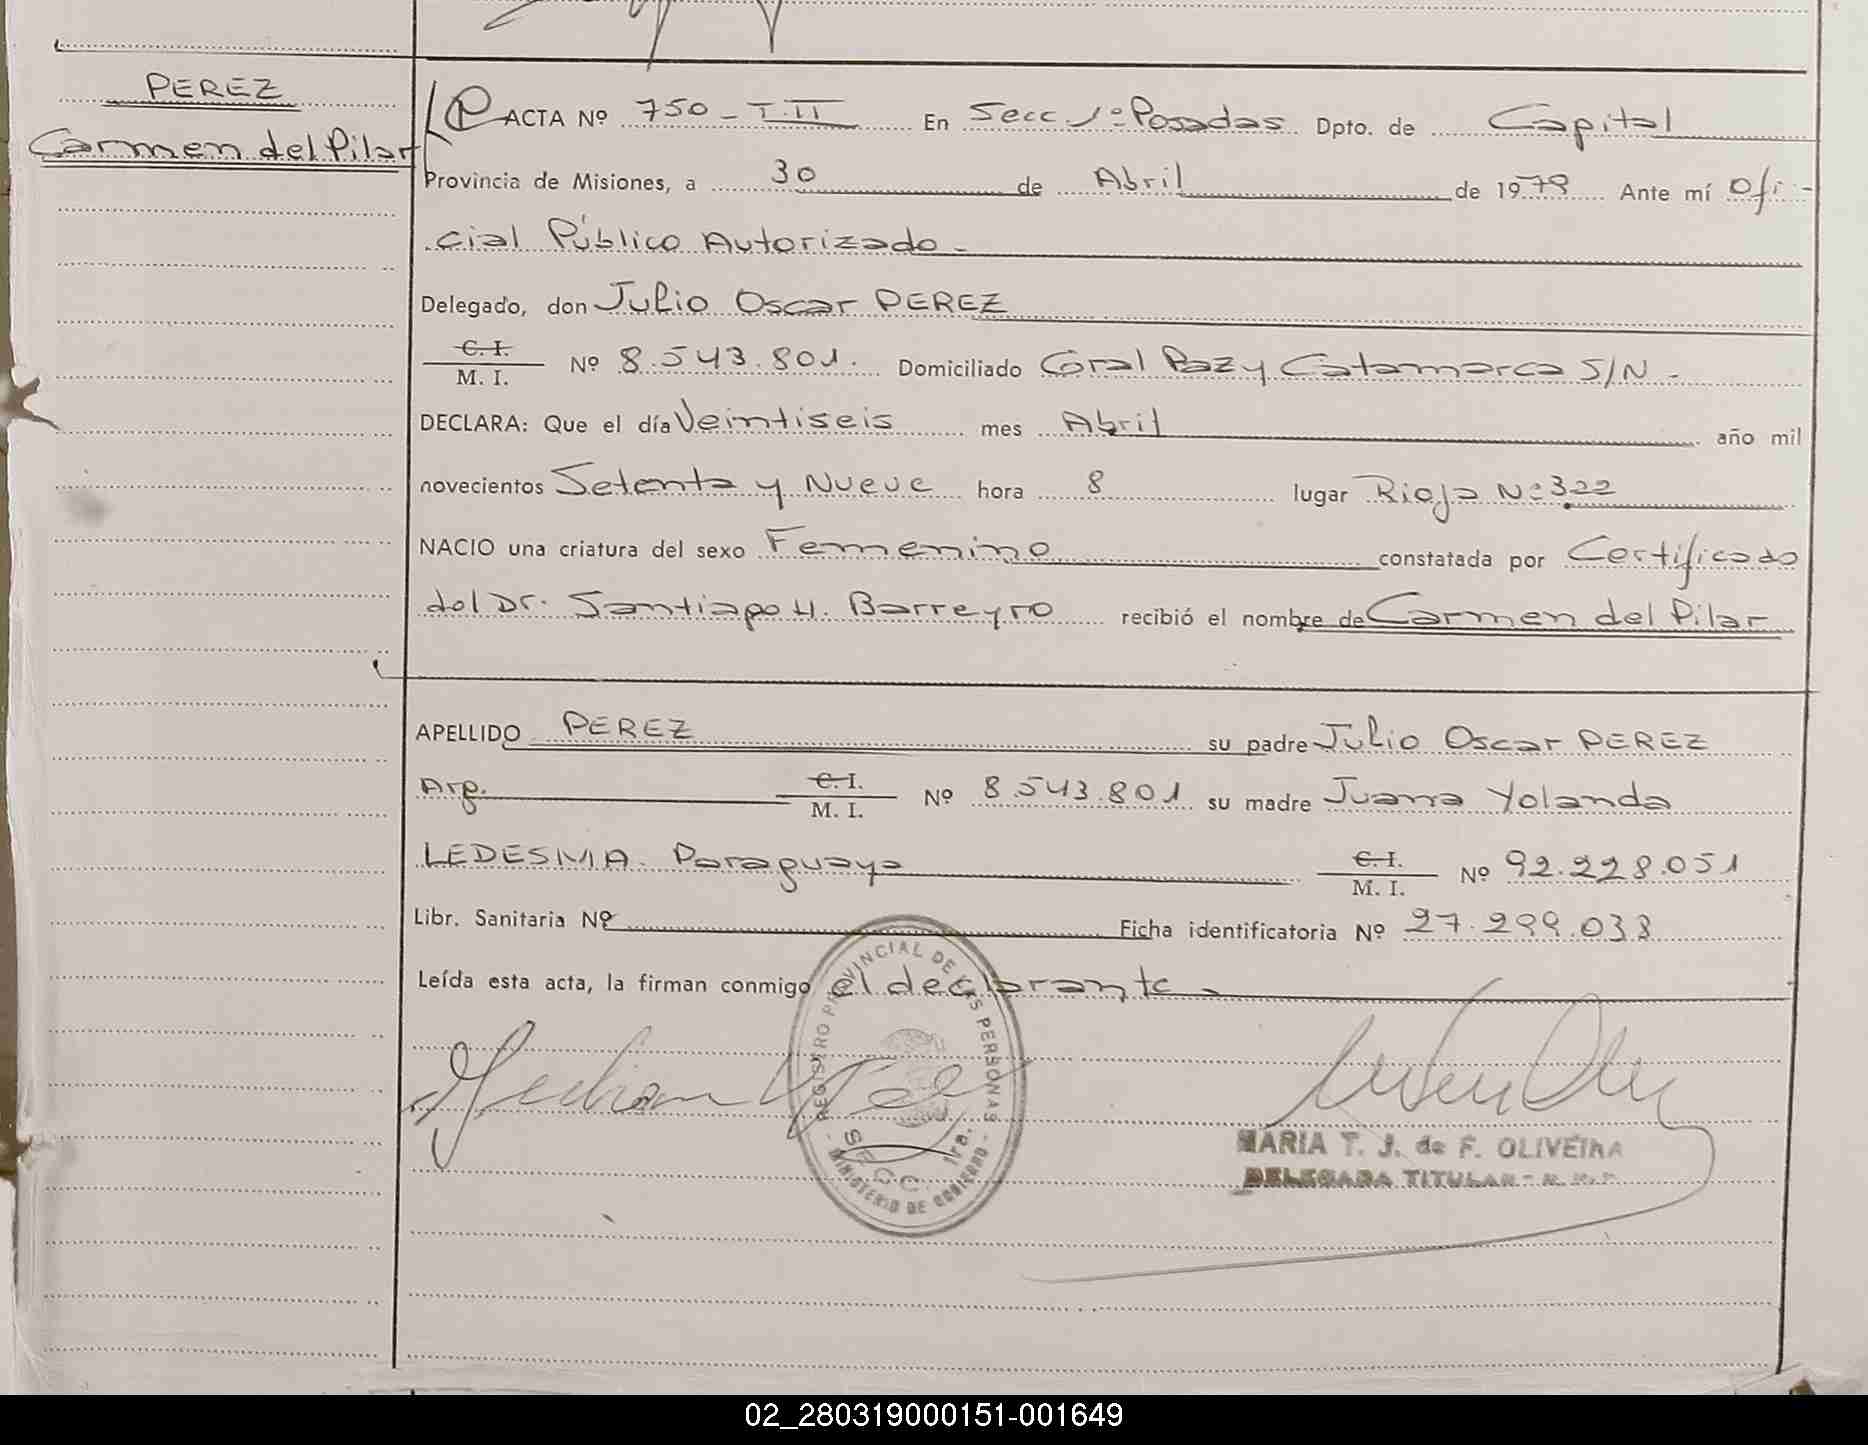 PEREZ
Carmen del Pilar
ACTA Nº 750 - T. II En Secc. 1º Posadas Dpto. de Capital
Provincia de Misiones, a 30 de Abril de 1979 Ante mí Ofi-
cial Público Autorizado -
Delegado, don Julio Oscar PEREZ
C. I.
M. I. Nº 8.543.801. Domiciliado Gral Paz y Catamarca S/N -
DECLARA: Que el día Veintiseis mes Abril año mil
novecientos Setenta y Nueve hora 8 lugar Rioja Nº 322
NACIO una criatura del sexo Femenino constatada por Certificado
del Dr. Santiago H. Barreyro recibió el nombre de Carmen del Pilar
APELLIDO PEREZ su padre Julio Oscar PEREZ
Arg. C. I. M. I. Nº 8.543.801 su madre Juana Yolanda
LEDESMA. Paraguaya C. I. M. I. Nº 92.228.051
Libr. Sanitaria Nº Ficha identificatoria Nº 27.299.033
Leída esta acta, la firman conmigo el declarante -
REGISTRO PROVINCIAL DE LAS PERSONAS
SECC. 1ra.
- MINISTERIO DE GOBIERNO -
MARIA T. J. de F. OLIVEIRA
DELEGADA TITULAR - R. P. P.
02_280319000151-001649